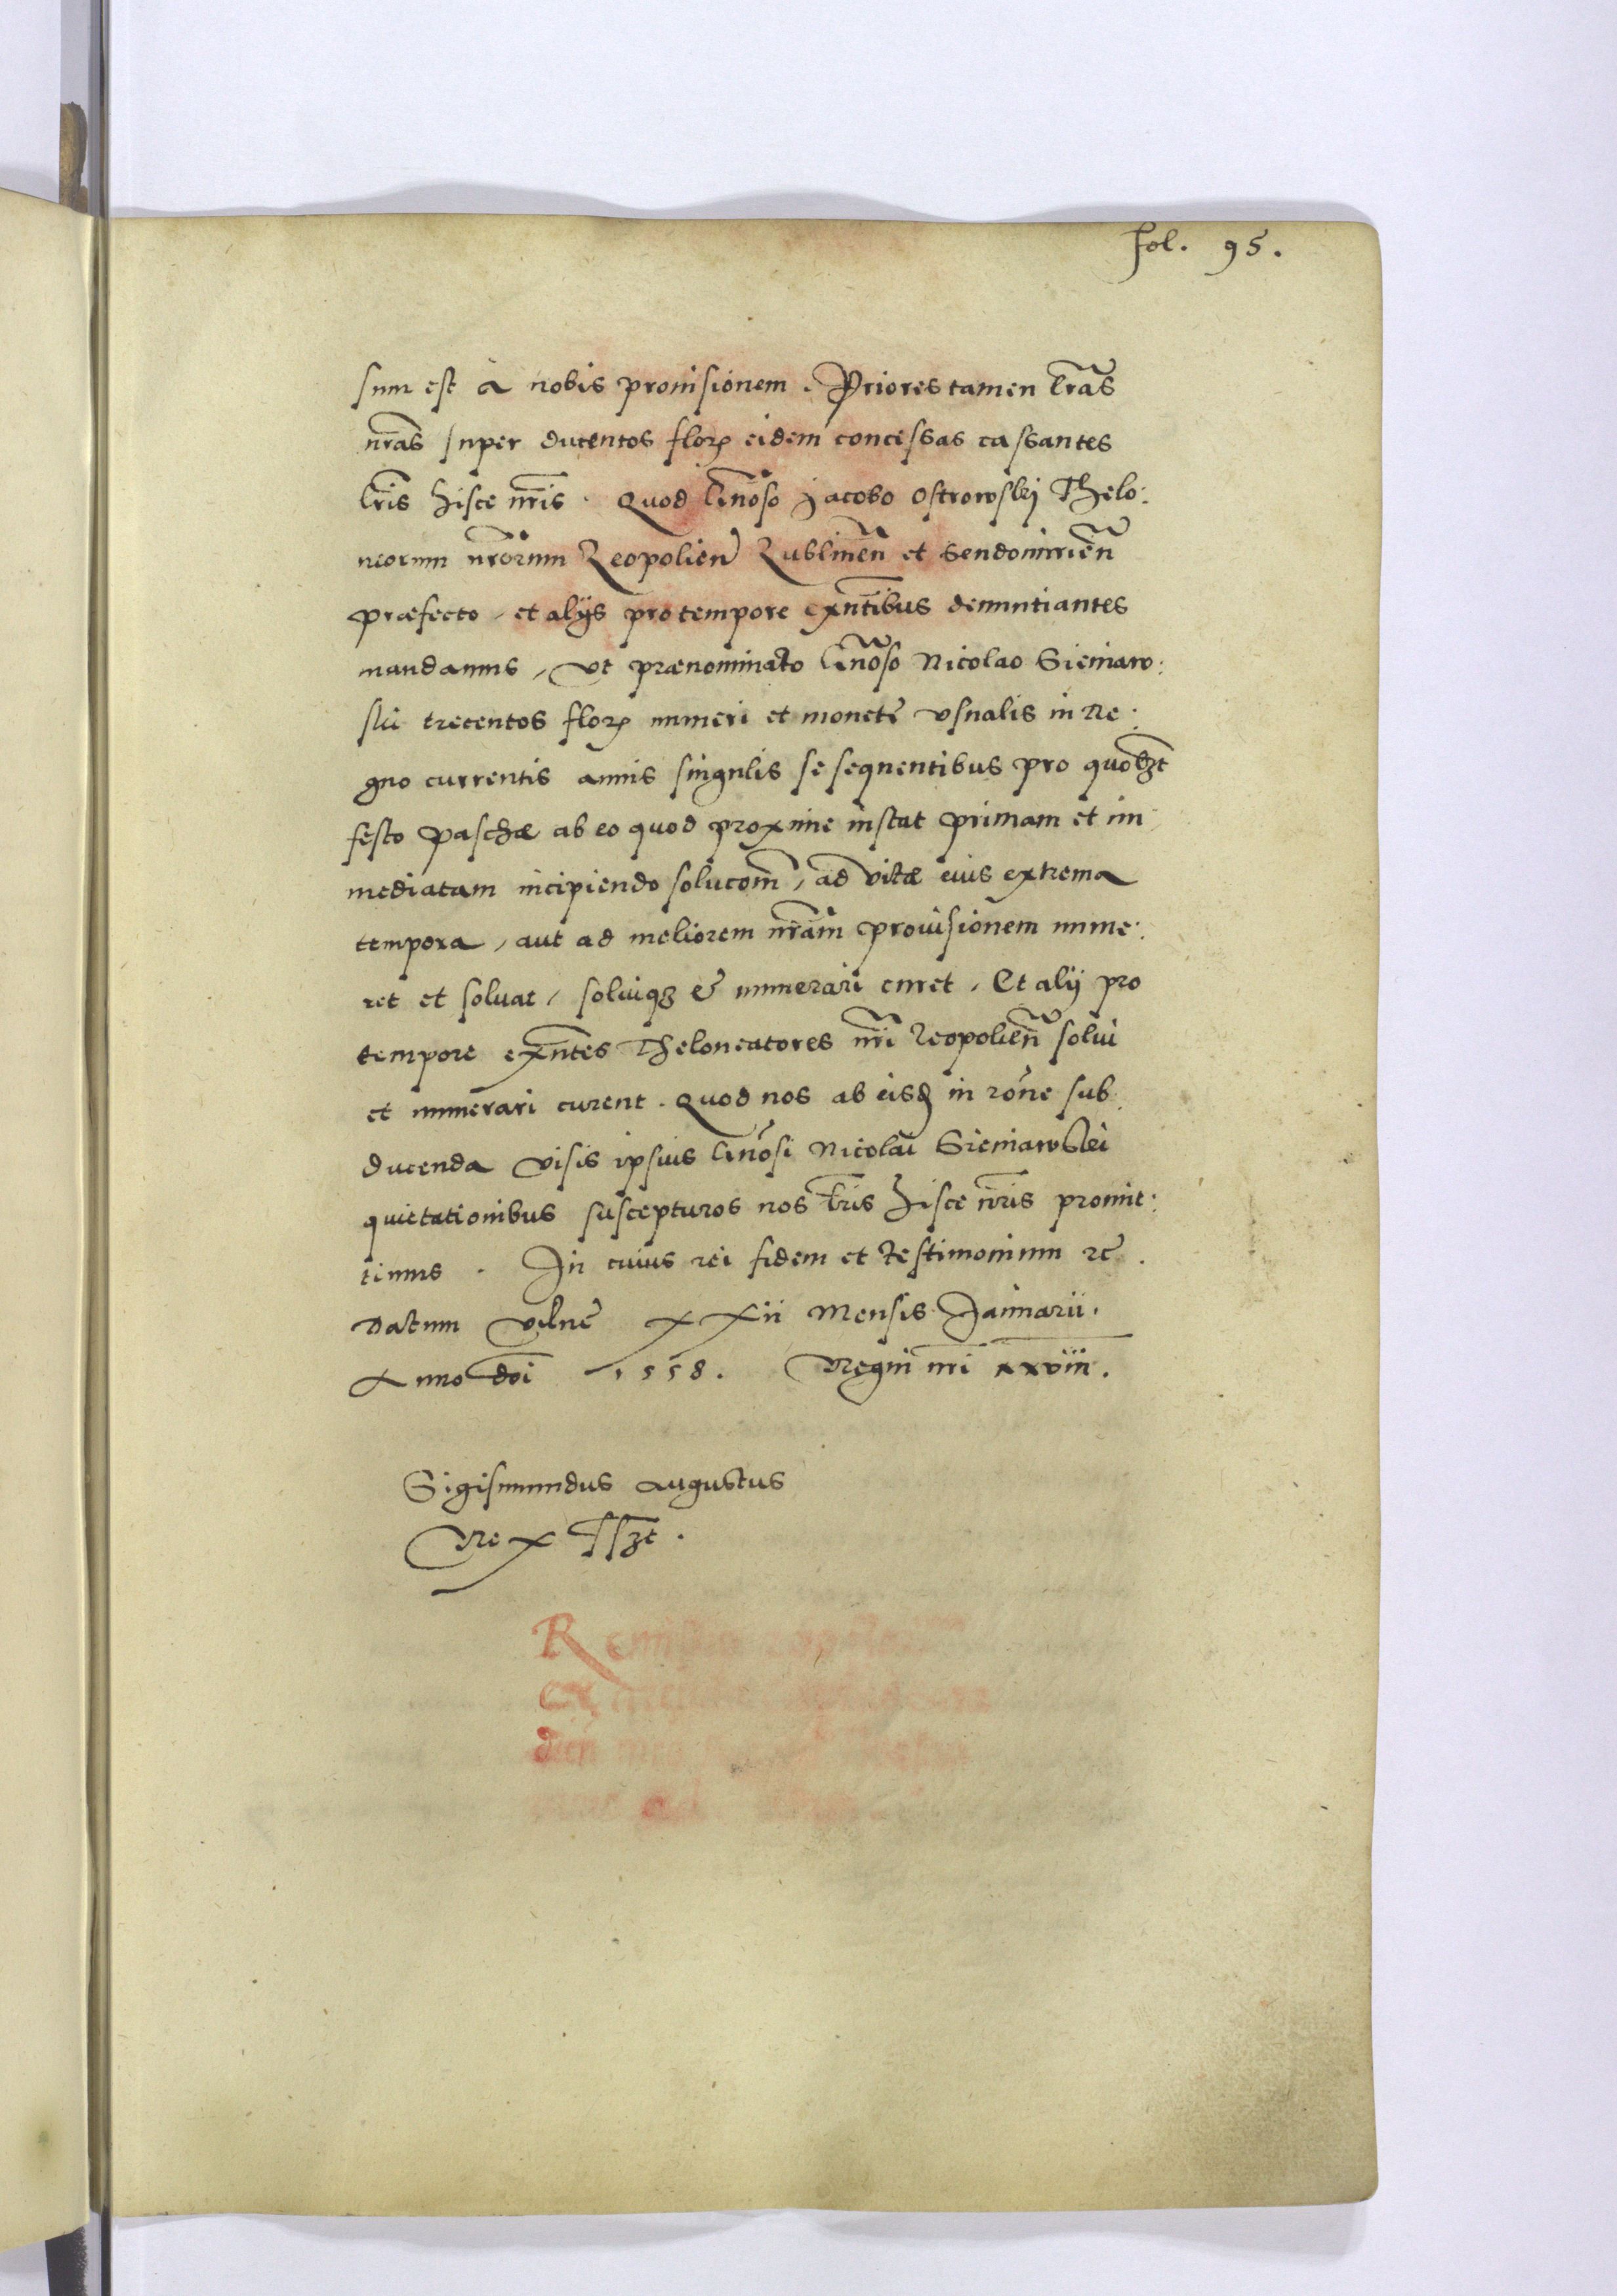 fol. 95.
sum est à nobis prouisionem. Priores tamen lr̃as
nr̃as super ducentos floꝝ eidem concessas cassantes
lr̃is hisce nr̃is. Quod Gñoso Jacobo Ostrowskj Thelo:
neorum nr̃orum Leopolieñ Lublineñ et Sendomirieñ
præfecto, et alijs pro tempore exñtibus denuntiantes
mandamus, vt prænominato Gñoso Nicolao Sieniaw:
ski trecentos floꝝ numeri et monetę vsualis in Re:
gno currentis annis singulis se sequentibus pro quolꝫt
festo Paschæ ab eo quod proxime instat primam et im:
mediatam incipiendo solucom̃, ad vitæ eius extrema
tempora, aut ad meliorem nr̃am prouisionem nume:
ret et soluat, soluiqꝫ & numerari curet. Et alij pro
tempore exñtes Theloneatores nr̃i Leopolieñ solui
et numerari curent. Quod nos ab eisd in rõne sub:
ducenda visis ipsius Gñosi Nicolai Sieniawskei
quietationibus suscepturos nos lr̃is hisce nr̃is promit:
timus. In cuius rei fidem et testimonium rc̃.
Datum Vilnę xxii Mensis Januarii.
Anno dñi 1558. Regni nr̃i xxviii.
Sigismundus Augustus
Rex sszt.
R
ex
dien